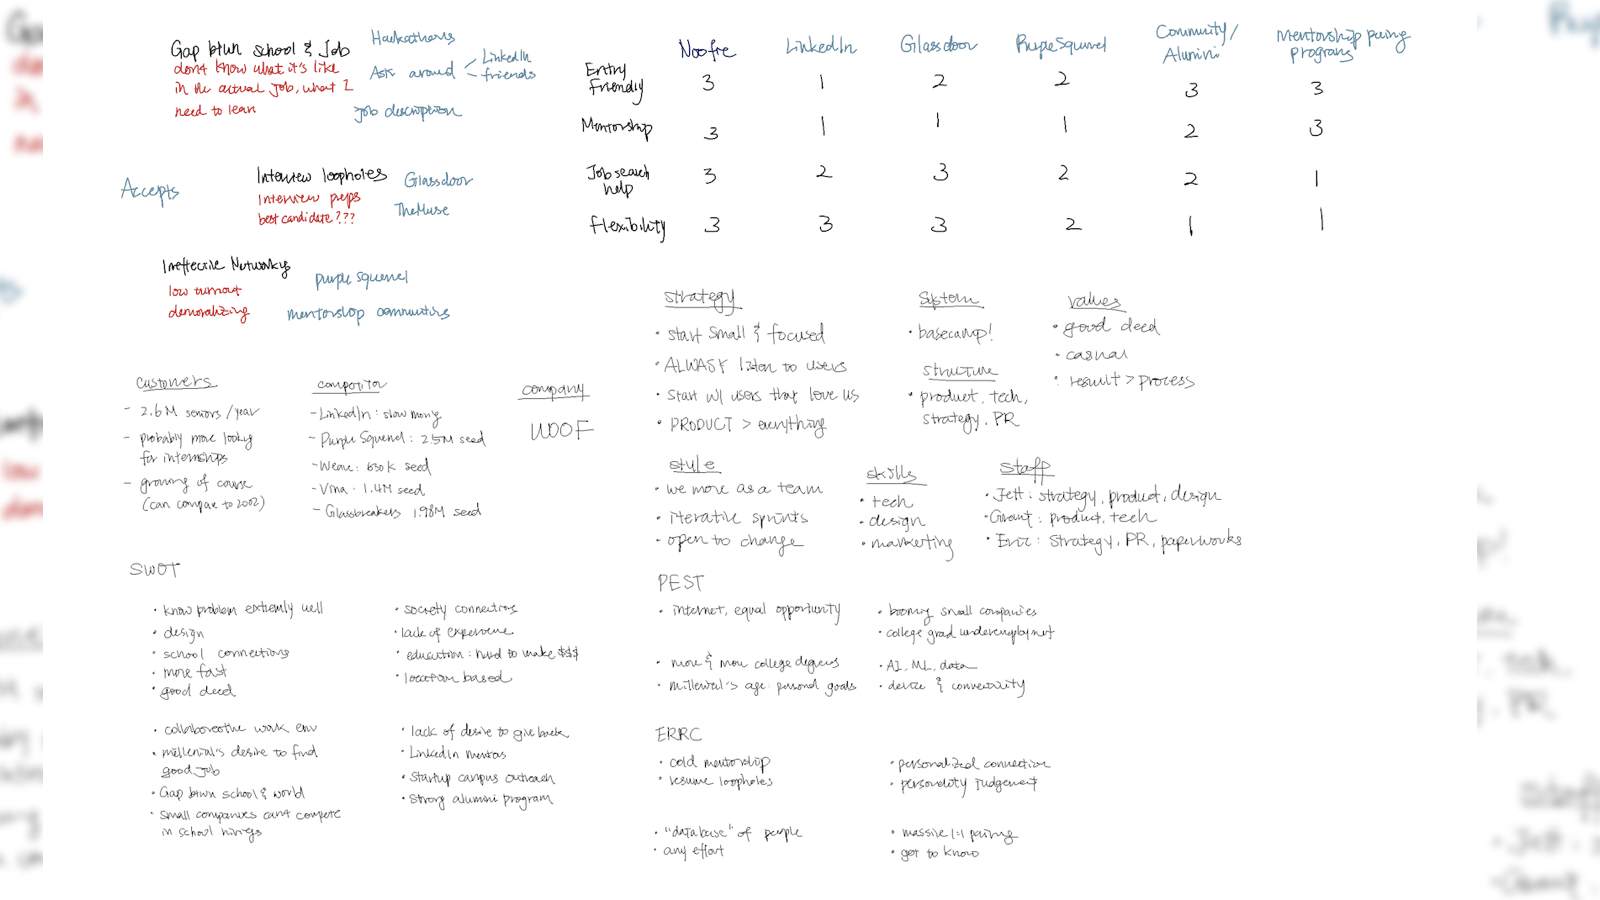 Gap btwn school & Job
don't know what it's like
in the actual Job, what I
need to learn
Hackathons
Ask around
LinkedIn
friends
Job description
Accepts
Interview loopholes
Interview preps
best candidate???
Glassdoor
TheMuse
Ineffective Networky
low turnout
demoralizing
purple squirrel
mentorship communities
Noofre LinkedIn Glassdoor Purple Squirrel Community/ Alumini Mentorship pairing programs
Entry Friendly 3 1 2 2 3 3
Mentorship 3 1 1 1 2 3
Job search help 3 2 3 2 2 1
Flexibility 3 3 3 2 1 1
customers
- 2.6M seniors/year
- probably more lookg
for internships
- growing of course
(can compare to 2002)
competitor
- LinkedIn: slow moving
- Purple Squirrel: 2.5M seed
- Weave: 630K seed
- Vina: 1.4M seed
- Glassbreakers 1.98M seed
company
WOOF
strategy
• start small & focused
• ALWASY listen to users
• Start w/ users that love us
• PRODUCT > everything
System
• basecamp!
structure
• product, tech,
strategy, PR
values
• good deed
• casual
• result > process
style
• we move as a team
• iterative sprints
• open to change
skills
• tech
• design
• marketing
staff
• Jeff: strategy, product, design
• Grant: product, tech
• Eric: strategy, PR, paperworks
SWOT
• know problem extremly well
• design
• school connections
• move fast
• good deed
• society connections
• lack of experience
• education: hard to make $$$
• location based
• collaboreathe work env
• millenial's desire to find
good job
• Gap btwn school & world
• Small companies can't compete
in school hirings
• lack of desire to give back
• LinkedIn mentors
• Startup campus outreach
• Strong alumini program
PEST
• internet, equal opportunity
• booming small companies
• college grad underemploymet
• more & more college degrees
• millenial's age: personal goals
• AI, ML, data
• device & connectivity
ERRC
• cold mentorship
• resume loopholes
• personalized connection
• personality judgement
• "database" of people
• any effort
• massive 1:1 pairing
• get to know